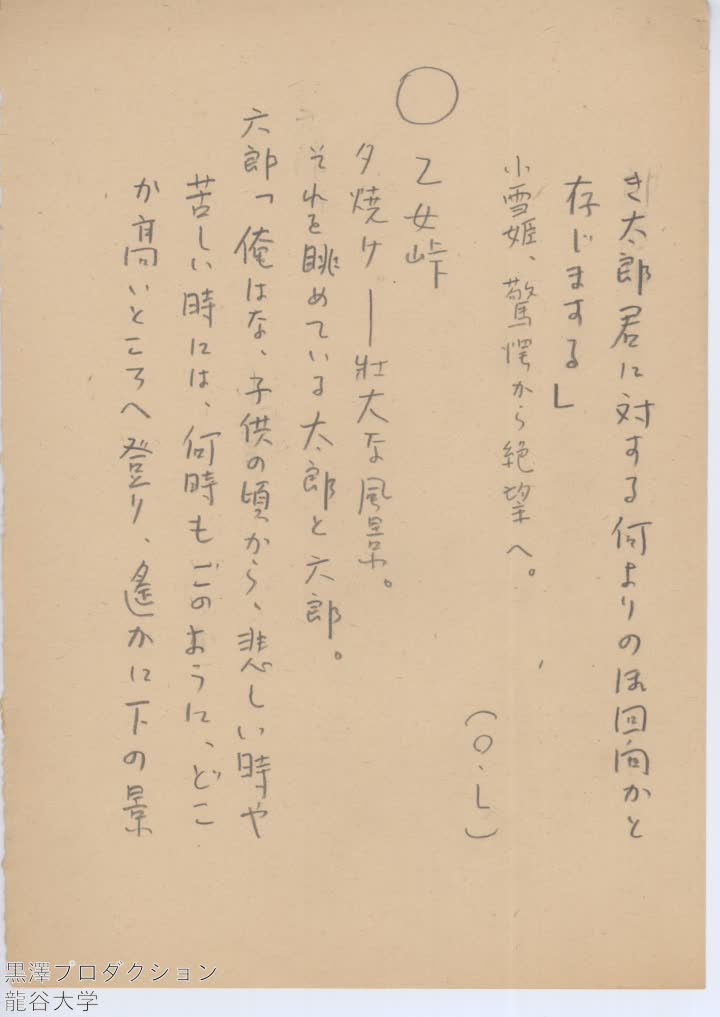 き太郎君に対する何よりの御回向かと
存じまする」
小雪姫、驚愕から絶望へ。
(O.L)
○
乙女峠
夕焼け―壮大な風景。
それを眺めている太郎と六郎。
六郎「俺はな、子供の頃から、悲しい時や
苦しい時には、何時もこのように、どこ
か高いところへ登り、遙かに下の景
黒澤プロダクション
龍谷大学